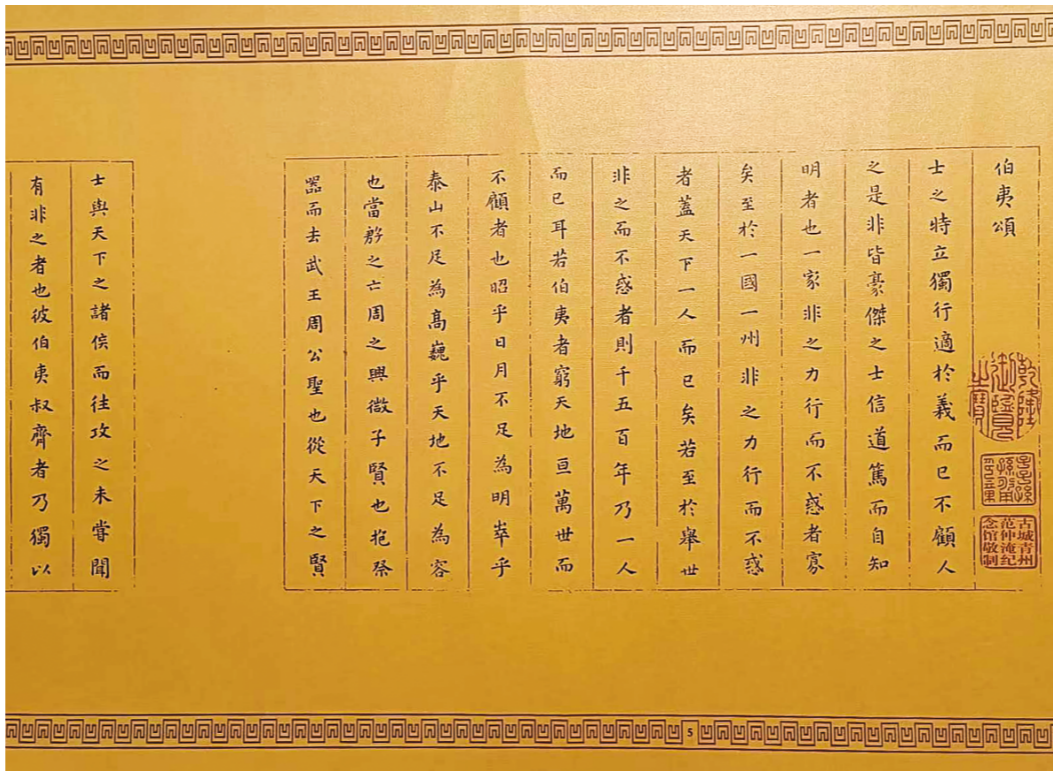 伯夷頌
士之特立獨行適於義而已不顧人
之是非皆豪傑之士信道篤而自知
明者也一家非之力行而不惑者寡
矣至於一國一州非之力行而不惑
者蓋天下一人而已矣若至於舉世
非之而不惑者則千五百年乃一人
而已耳若伯夷者窮天地亘萬世而
不顧者也昭乎日月不足為明崒乎
泰山不足為高巍乎天地不足為容
也當殷之亡周之興微子賢也抱祭
器而去武王周公聖也從天下之賢
士與天下之諸侯而往攻之未嘗聞
有非之者也彼伯夷叔齊者乃獨以
乾隆
御覽
之寶
古城青州
范仲淹纪
念馆敬制
5